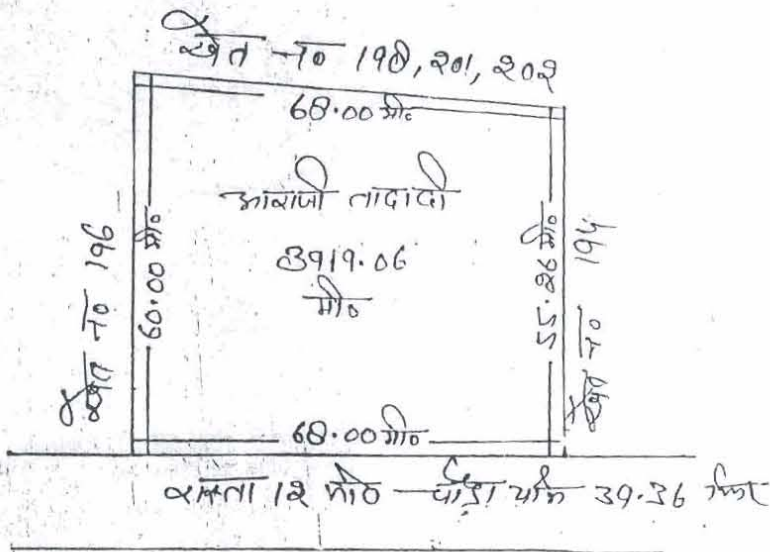 खेत नं० 198, 201, 202
68.00 मी०
आराजी तादादी
3919.06
मी०
खेत नं० 196
60.00 मी०
55.26 मी०
खेत नं० 195
68.00 मी०
रास्ता 12 मी० चौड़ा यानि 39.36 फिट